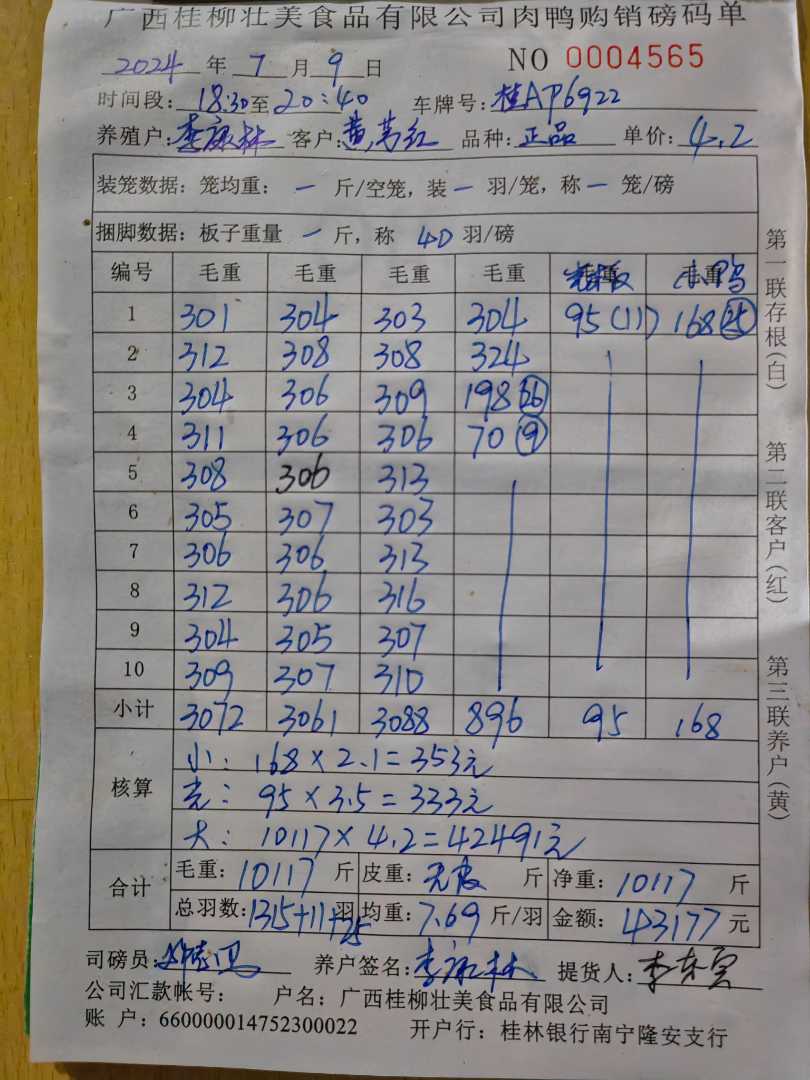 广西桂柳壮美食品有限公司肉鸭购销磅码单
2024 年 7 月 9 日 NO 0004565
时间段: 18:30 至 20:40 车牌号: 桂AP6922
养殖户: 李 林 客户: 黄 红 品种: 正品 单价: 4.2
装笼数据: 笼均重: 一 斤/空笼, 装 一 羽/笼, 称 一 笼/磅
捆脚数据: 板子重量 一 斤, 称 40 羽/磅
编号 毛重 毛重 毛重 毛重 毛重 小鸭
1 301 304 303 304 95 (11) 168 (25)
2 312 308 308 324
3 304 306 309 198 (26)
4 311 306 306 70 (9)
5 308 306 313
6 305 307 303
7 306 306 313
8 312 306 316
9 304 305 307
10 309 307 310
小计 3072 3061 3088 896 95 168
核算
小: 168 × 2.1 = 353元
壳: 95 × 3.5 = 333元
大: 10117 × 4.2 = 42491元
合计
毛重: 10117 斤 皮重: 斤 净重: 10117 斤
总羽数: 1315+11+25 羽 均重: 7.69 斤/羽 金额: 43177 元
司磅员: 养户签名: 李 林 提货人: 李
公司汇款帐号: 户名: 广西桂柳壮美食品有限公司
账 户: 660000014752300022 开户行: 桂林银行南宁隆安支行
第一联存根(白)
第二联客户(红)
第三联养户(黄)